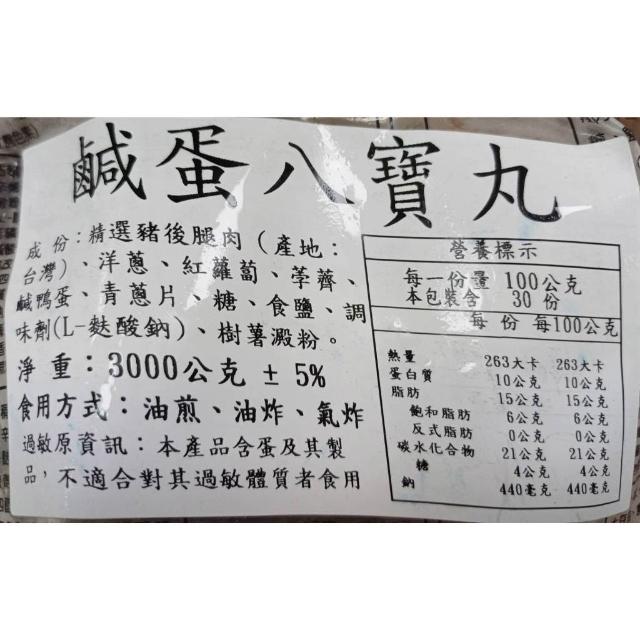 鹹蛋八寶丸
成份：精選豬後腿肉（產地：
台灣）、洋蔥、紅蘿蔔、荸薺、
鹹鴨蛋、青蔥片、糖、食鹽、調
味劑(L-麩酸鈉)、樹薯澱粉。
淨重：3000公克 ± 5%
食用方式：油煎、油炸、氣炸
過敏原資訊：本產品含蛋及其製
品，不適合對其過敏體質者食用
營養標示
每一份量 100公克
本包裝含 30 份
每份 每100公克
熱量 263大卡 263大卡
蛋白質 10公克 10公克
脂肪 15公克 15公克
飽和脂肪 6公克 6公克
反式脂肪 0公克 0公克
碳水化合物 21公克 21公克
糖 4公克 4公克
鈉 440毫克 440毫克